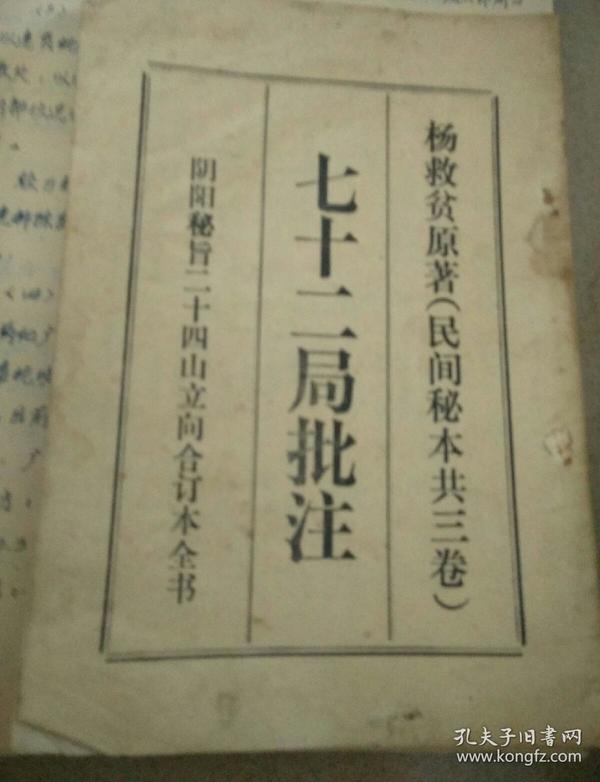 杨救贫原著(民间秘本共三卷)
七十二局批注
阴阳秘旨二十四山立向合订本全书
孔夫子旧书网
www.kongfz.com